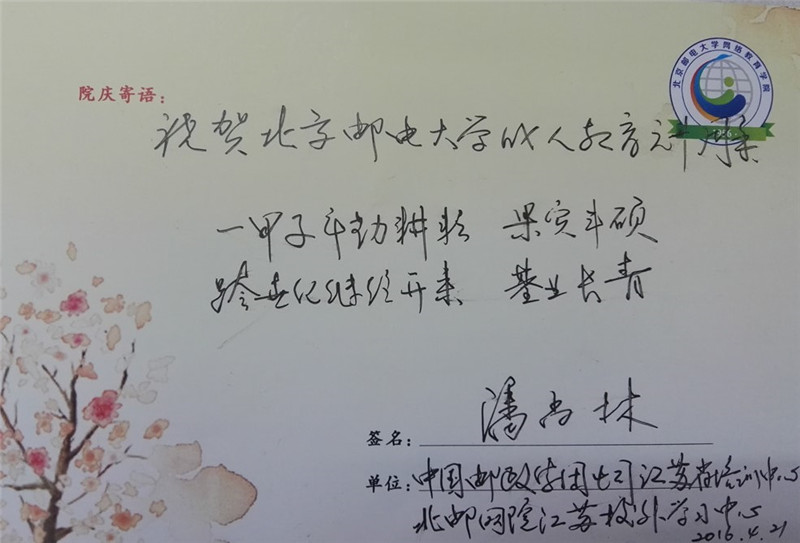 北京邮电大学网络教育学院
1956
院庆寄语：
祝贺北京邮电大学成人教育六十周年
一甲子辛勤耕耘 果实丰硕
跨世纪继往开来 基业长青
签名：潘尚林
单位：中国邮政集团公司江苏省培训中心
北邮网院江苏校外学习中心
2016.4.21